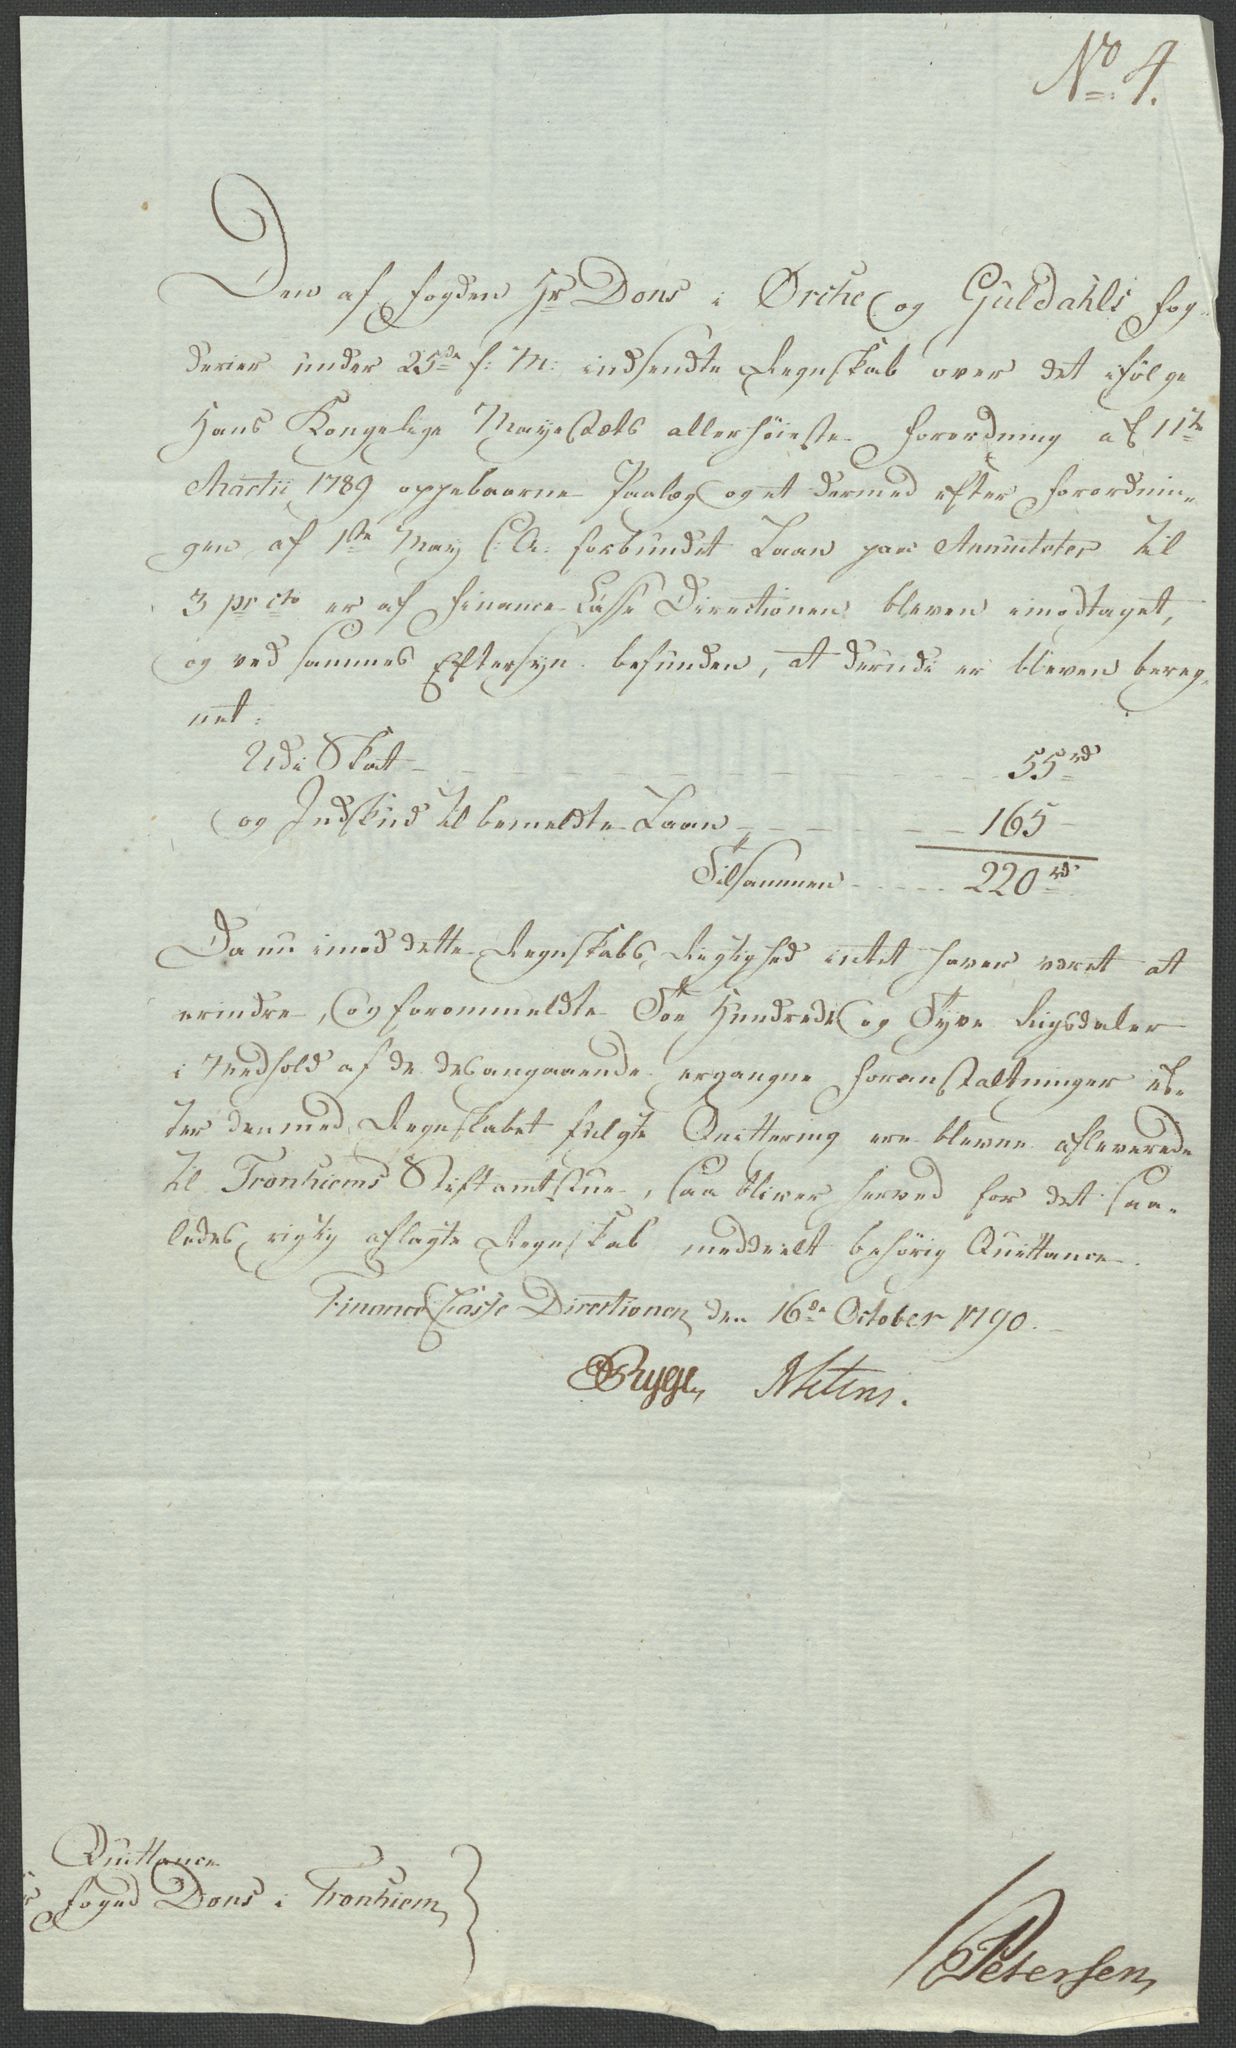 No 4.
Den af Fogden Hr Dons i Orche og Guldahls Fog-
derier under 25de f: M: indsendte Regnskab over det ifølge
Hans Kongelige Mayestæts allerhöieste Forordning af 11te
Martii 1789 oppebaarne Paalæg og et dermed efter Forordnin-
gen af 1ste May s: A: forbundet Laan paa Annuiteter til
3 pr cto er af Finance Casse Directionen bleven imodtaget,
og ved sammes Eftersyn befunden, at derudi er bleven bereg-
net:
Udi Skat 55 rd
og Indskud til bemeldte Laan 165
Tilsammen 220 rd
Da nu imod dette Regnskabs Rigtighed intet haver været at
erindre, og forommeldte Toe Hundrede og Tyve Rigsdaler
i Medhold af de desangaaende ergangne Foranstaltninger ef-
ter den med Regnskabet fulgte Quittering ere blevne afleverede
til Tronhiems Stiftamtstue, saa bliver herved for det saa-
ledes rigtig aflagte Regnskab meddeelt behörig Quittance.
Finance Casse Directionen den 16de October 1790.
Ryge
Quittance
Foged Dons i Tronhiem
Petersen